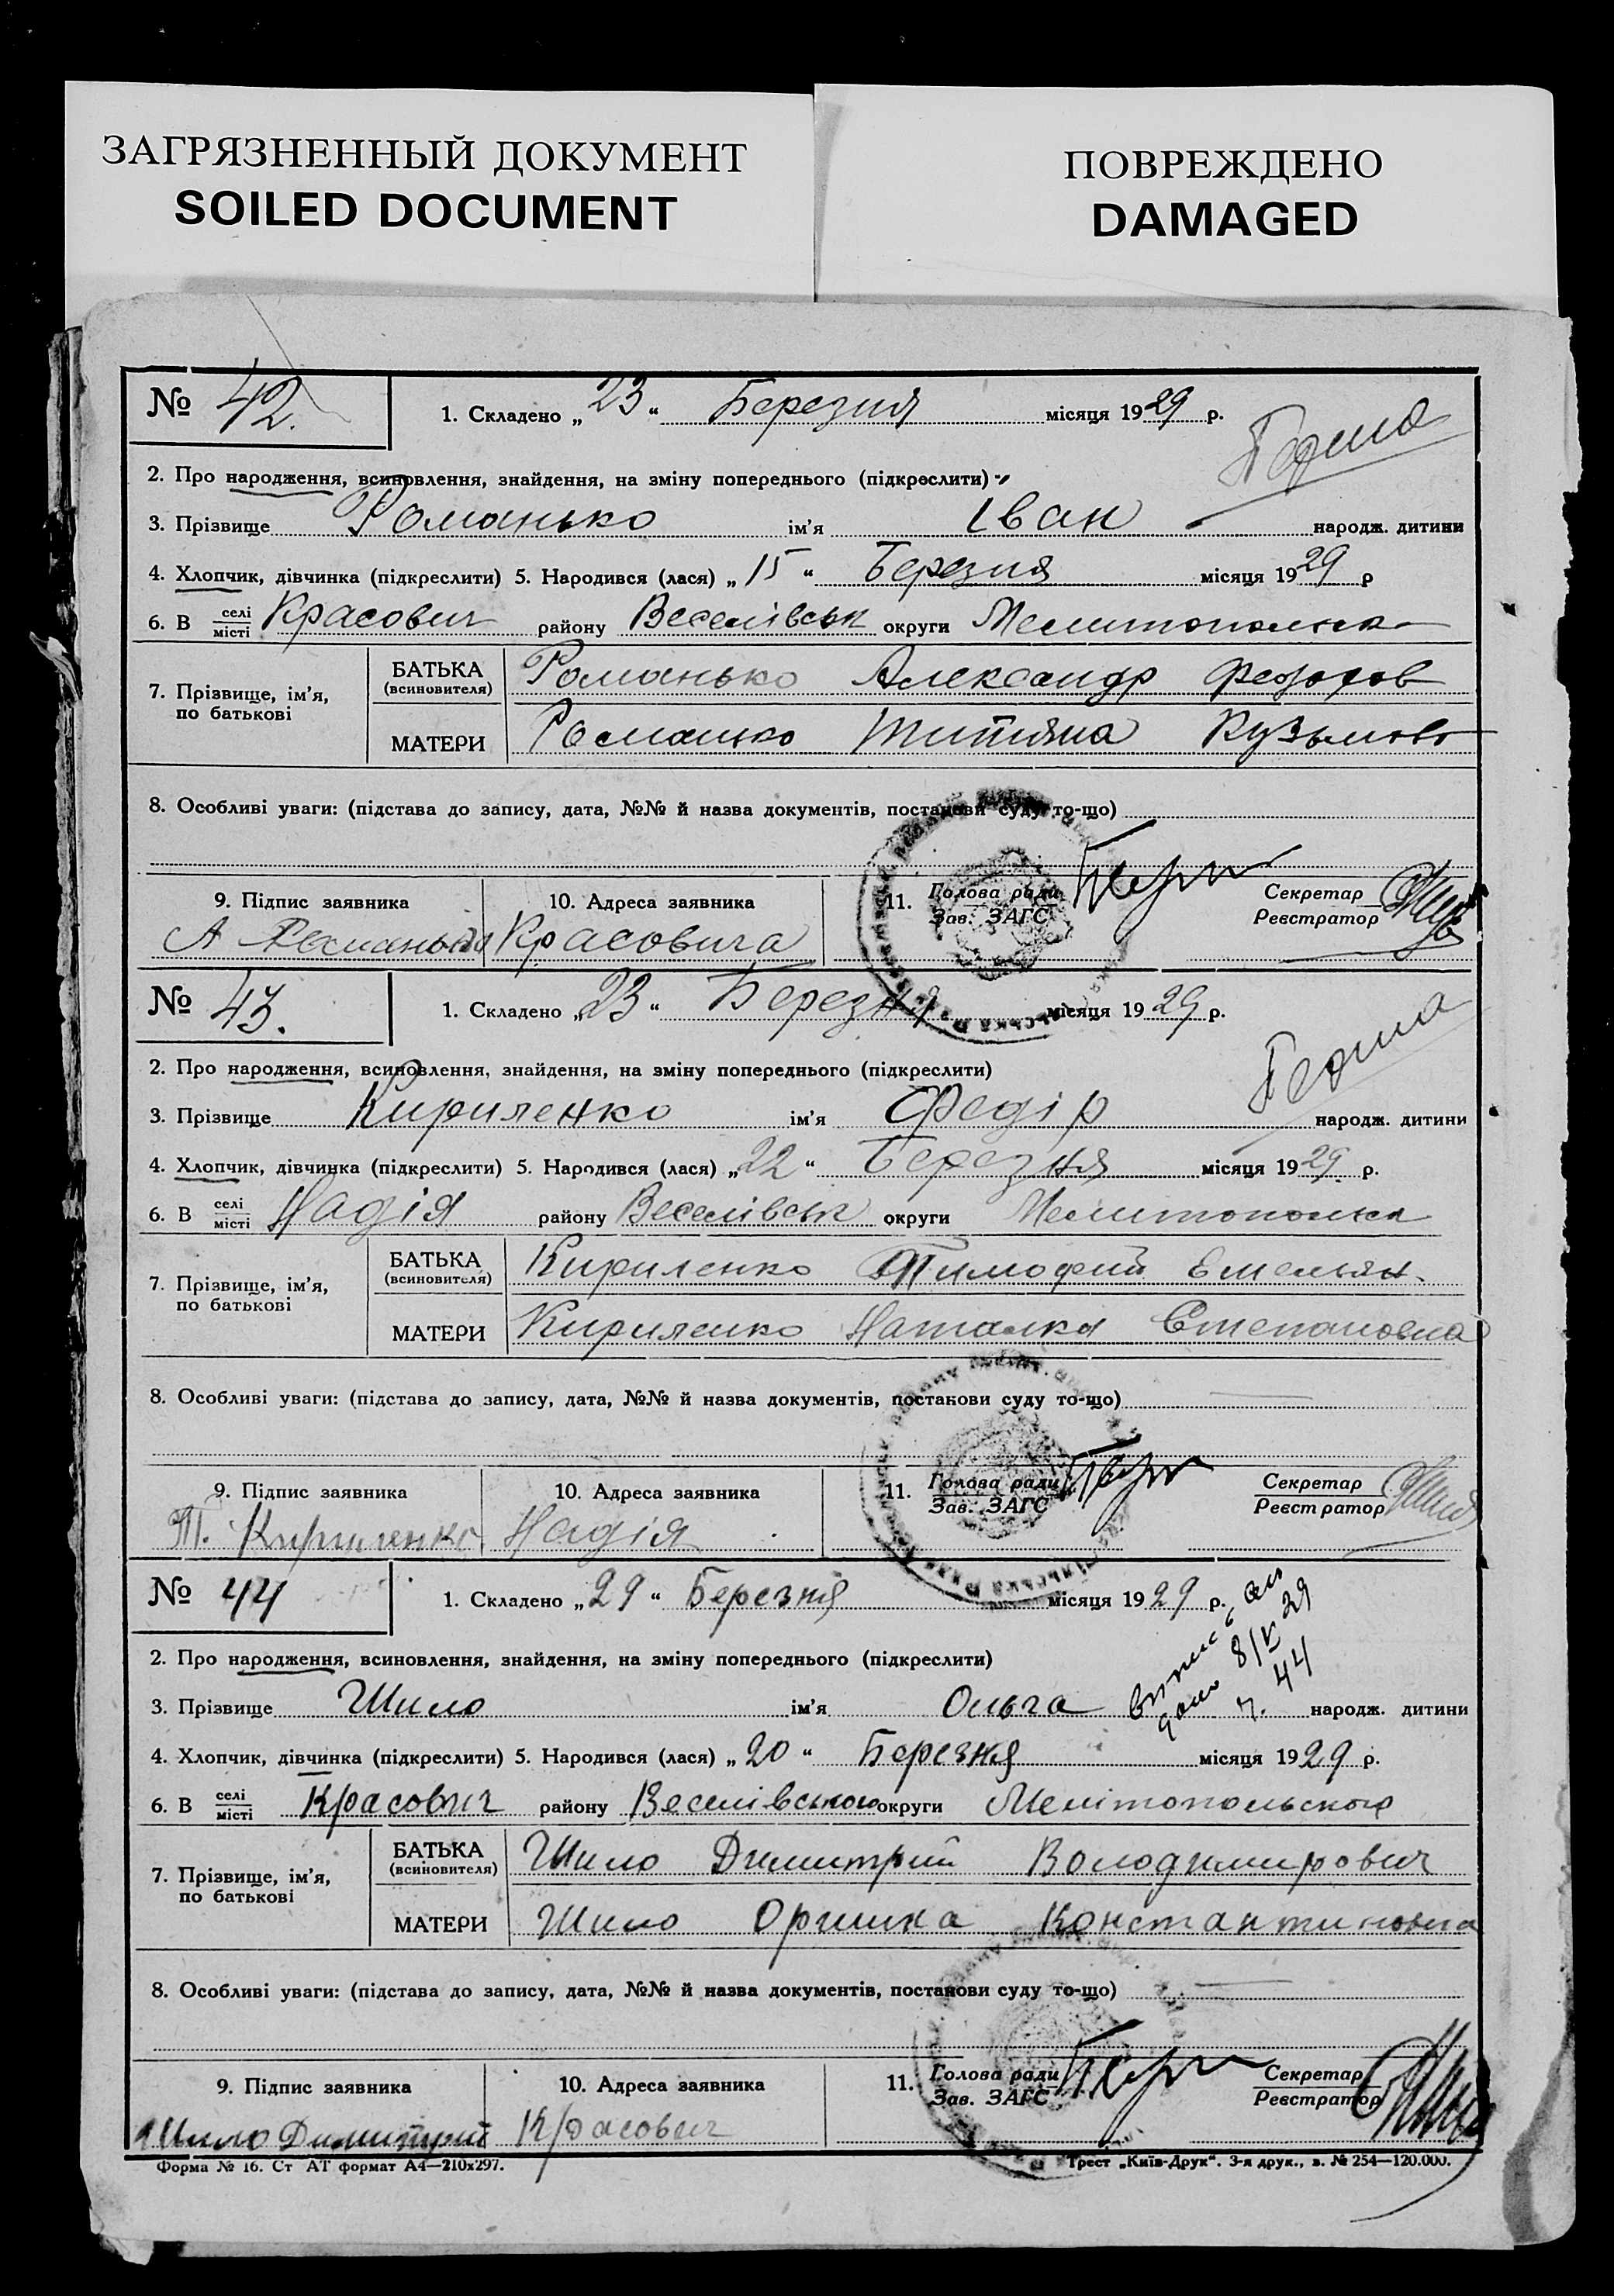 ЗАГРЯЗНЕННЫЙ ДОКУМЕНТ
SOILED DOCUMENT
ПОВРЕЖДЕНО
DAMAGED
№ 42. 1. Складено „23“ Березня місяця 1929 р.
2. Про народження, всиновлення, знайдення, на зміну попереднього (підкреслити)
3. Прізвище Романько ім’я Іван народж. дитини
4. Хлопчик, дівчинка (підкреслити) 5. Народився (лася) „15“ Березня місяця 1929 р
6. В селі/місті Красович району Веселівськ округи Мелитопольск
7. Прізвище, ім’я, по батькові
БАТЬКА (всиновителя) Романько Александр Федоров
МАТЕРИ Романько Титяна Кузьмов
8. Особливі уваги: (підстава до запису, дата, №№ й назва документів, постанови суду то-що)
9. Підпис заявника 10. Адреса заявника 11. Голова ради Зав. ЗАГС Секретар Реєстратор
А Романько Красовича
№ 43. 1. Складено „23“ Березня місяця 1929 р.
2. Про народження, всиновлення, знайдення, на зміну попереднього (підкреслити)
3. Прізвище Кириленко ім’я Федір народж. дитини
4. Хлопчик, дівчинка (підкреслити) 5. Народився (лася) „22“ Березня місяця 1929 р.
6. В селі/місті Надія району Веселівськ округи Мелитопольск
7. Прізвище, ім’я, по батькові
БАТЬКА (всиновителя) Кириленко Тимофий Емельян.
МАТЕРИ Кириленко Наталка Степановна
8. Особливі уваги: (підстава до запису, дата, №№ й назва документів, постанови суду то-що)
9. Підпис заявника 10. Адреса заявника 11. Голова ради Зав. ЗАГС Секретар Реєстратор
Т. Кириленко Надія
№ 44 1. Складено „29“ Березня місяця 1929 р.
2. Про народження, всиновлення, знайдення, на зміну попереднього (підкреслити)
3. Прізвище Шило ім’я Ольга народж. дитини
4. Хлопчик, дівчинка (підкреслити) 5. Народився (лася) „20“ Березня місяця 1929 р.
6. В селі/місті Красович району Веселівського округи Мелітопольского
7. Прізвище, ім’я, по батькові
БАТЬКА (всиновителя) Шило Димитрий Володимирович
МАТЕРИ Шило Оришка Константиновна
8. Особливі уваги: (підстава до запису, дата, №№ й назва документів, постанови суду то-що)
9. Підпис заявника 10. Адреса заявника 11. Голова ради Зав. ЗАГС Секретар Реєстратор
Шило Димитрий Красович
Форма № 16. Ст АТ формат А4—210х297. Трест „Київ-Друк“. 3-я друк., з. № 254—120.000.